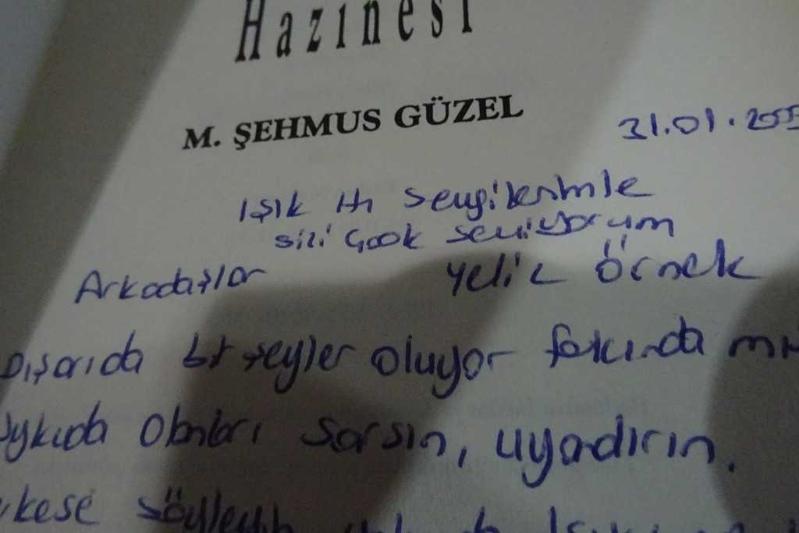 Hazinesi
M. ŞEHMUS GÜZEL
31.01.
Işık Hı sevgilerimle
sizi çook seviyorum
Arkadaşlar
Yeliz örnek
Dışarıda bir şeyler oluyor fakında mı
uykuda olanları sarsın, uyadırın.